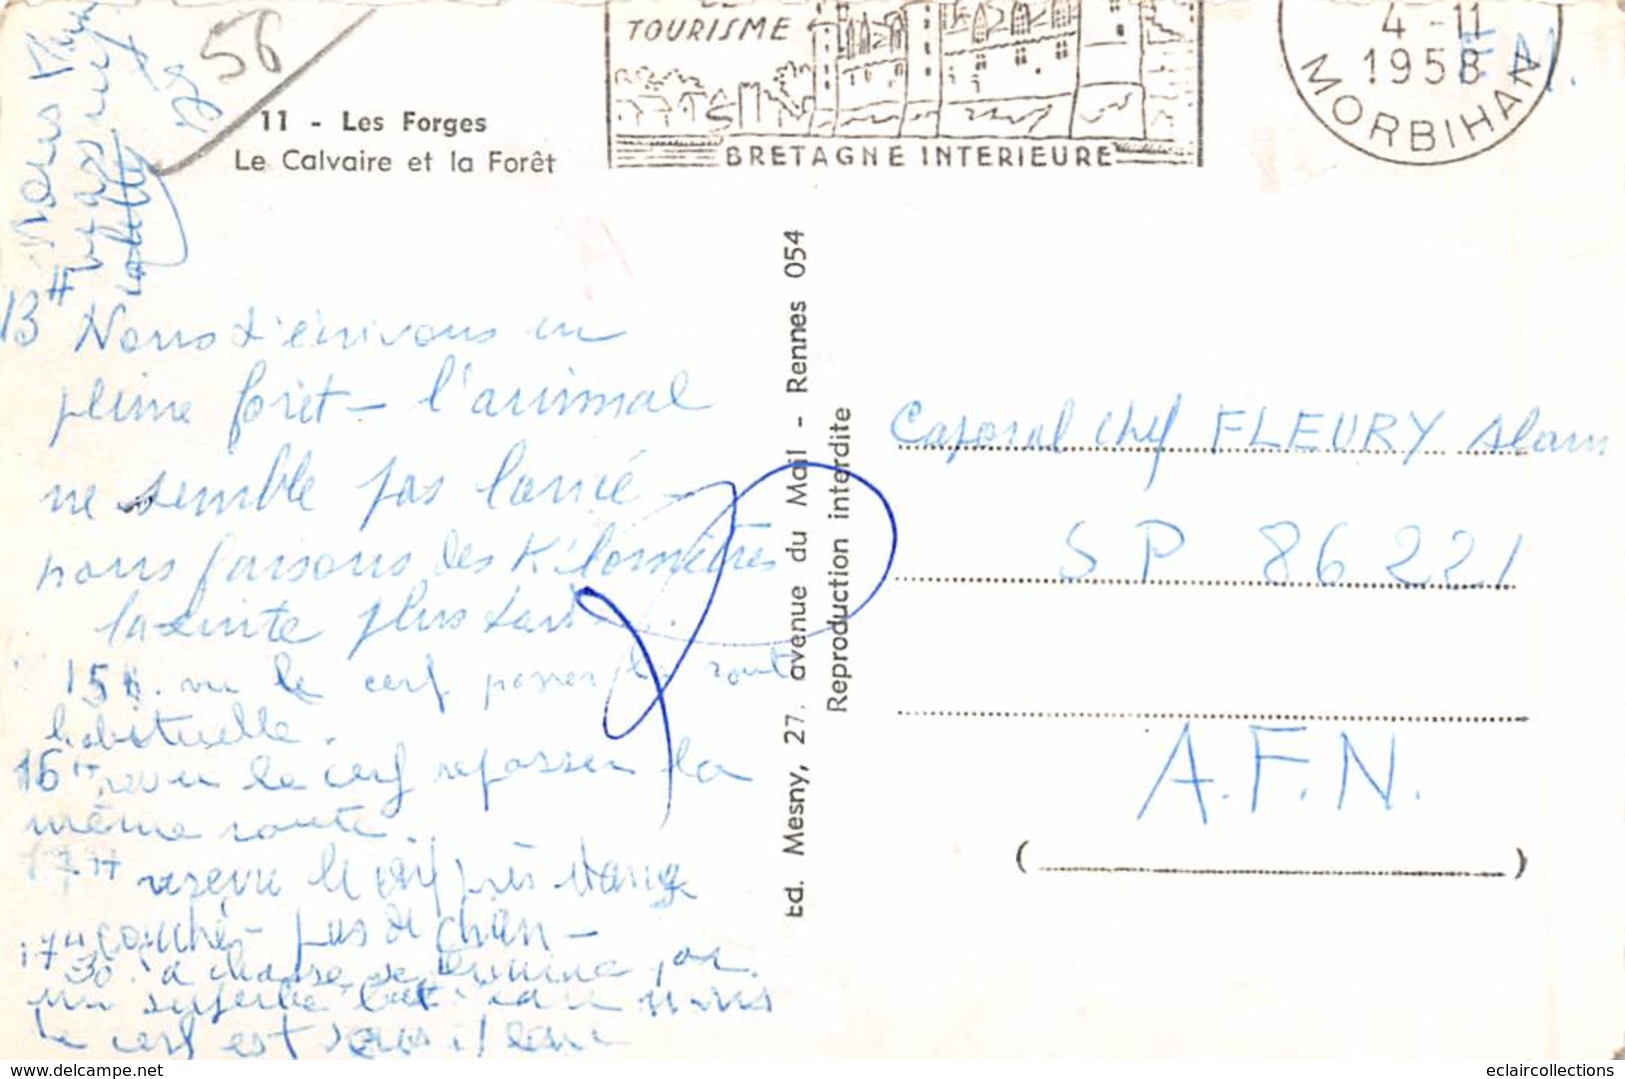 56
11 - Les Forges
Le Calvaire et la Forêt
TOURISME
BRETAGNE INTERIEURE
4 -11
1958
MORBIHAN
13 H Nous t'écrivons en
pleine forêt - l'animal
ne semble pas lancé -
nous faisons des Kilomètres
la suite plus tard
15 H. vu le cerf passer la route
habituelle.
16 H, revu le cerf repasser la
même route.
17 H rerevu le cerf près
couché - pas de chien -
17 H 30. la chasse se termine par
un superbe
le cerf est
Ed. Mesny, 27. avenue du Mail - Rennes 054
Reproduction interdite
Caporal chef FLEURY Alain
SP 86 221
A.F.N.
eclaircollections